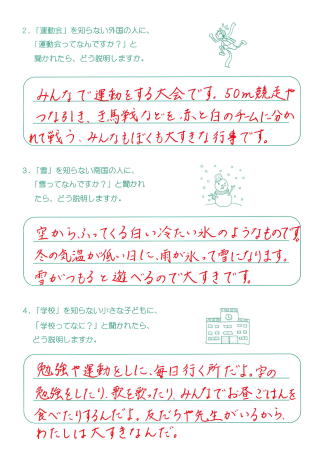 2. 「運動会」を知らない外国の人に、
「運動会ってなんですか？」と
聞かれたら、どう説明しますか。
みんなで運動をする大会です。50m競走や
つなひき、き馬戦などを、赤と白のチームに分か
れて戦う、みんなもぼくも大すきな行事です。
3. 「雪」を知らない南国の人に、
「雪ってなんですか？」と聞かれ
たら、どう説明しますか。
空からふってくる白い冷たい氷のようなものです。
冬の気温が低い日に、雨が氷って雪になります。
雪がつもると遊べるので大すきです。
4. 「学校」を知らない小さな子どもに、
「学校ってなに？」と聞かれたら、
どう説明しますか。
勉強や運動をしに、毎日行く所だよ。字の
勉強をしたり、歌を歌ったり、みんなでお昼ごはんを
食べたりするんだよ。友だちや先生がいるから、
わたしは大すきなんだ。